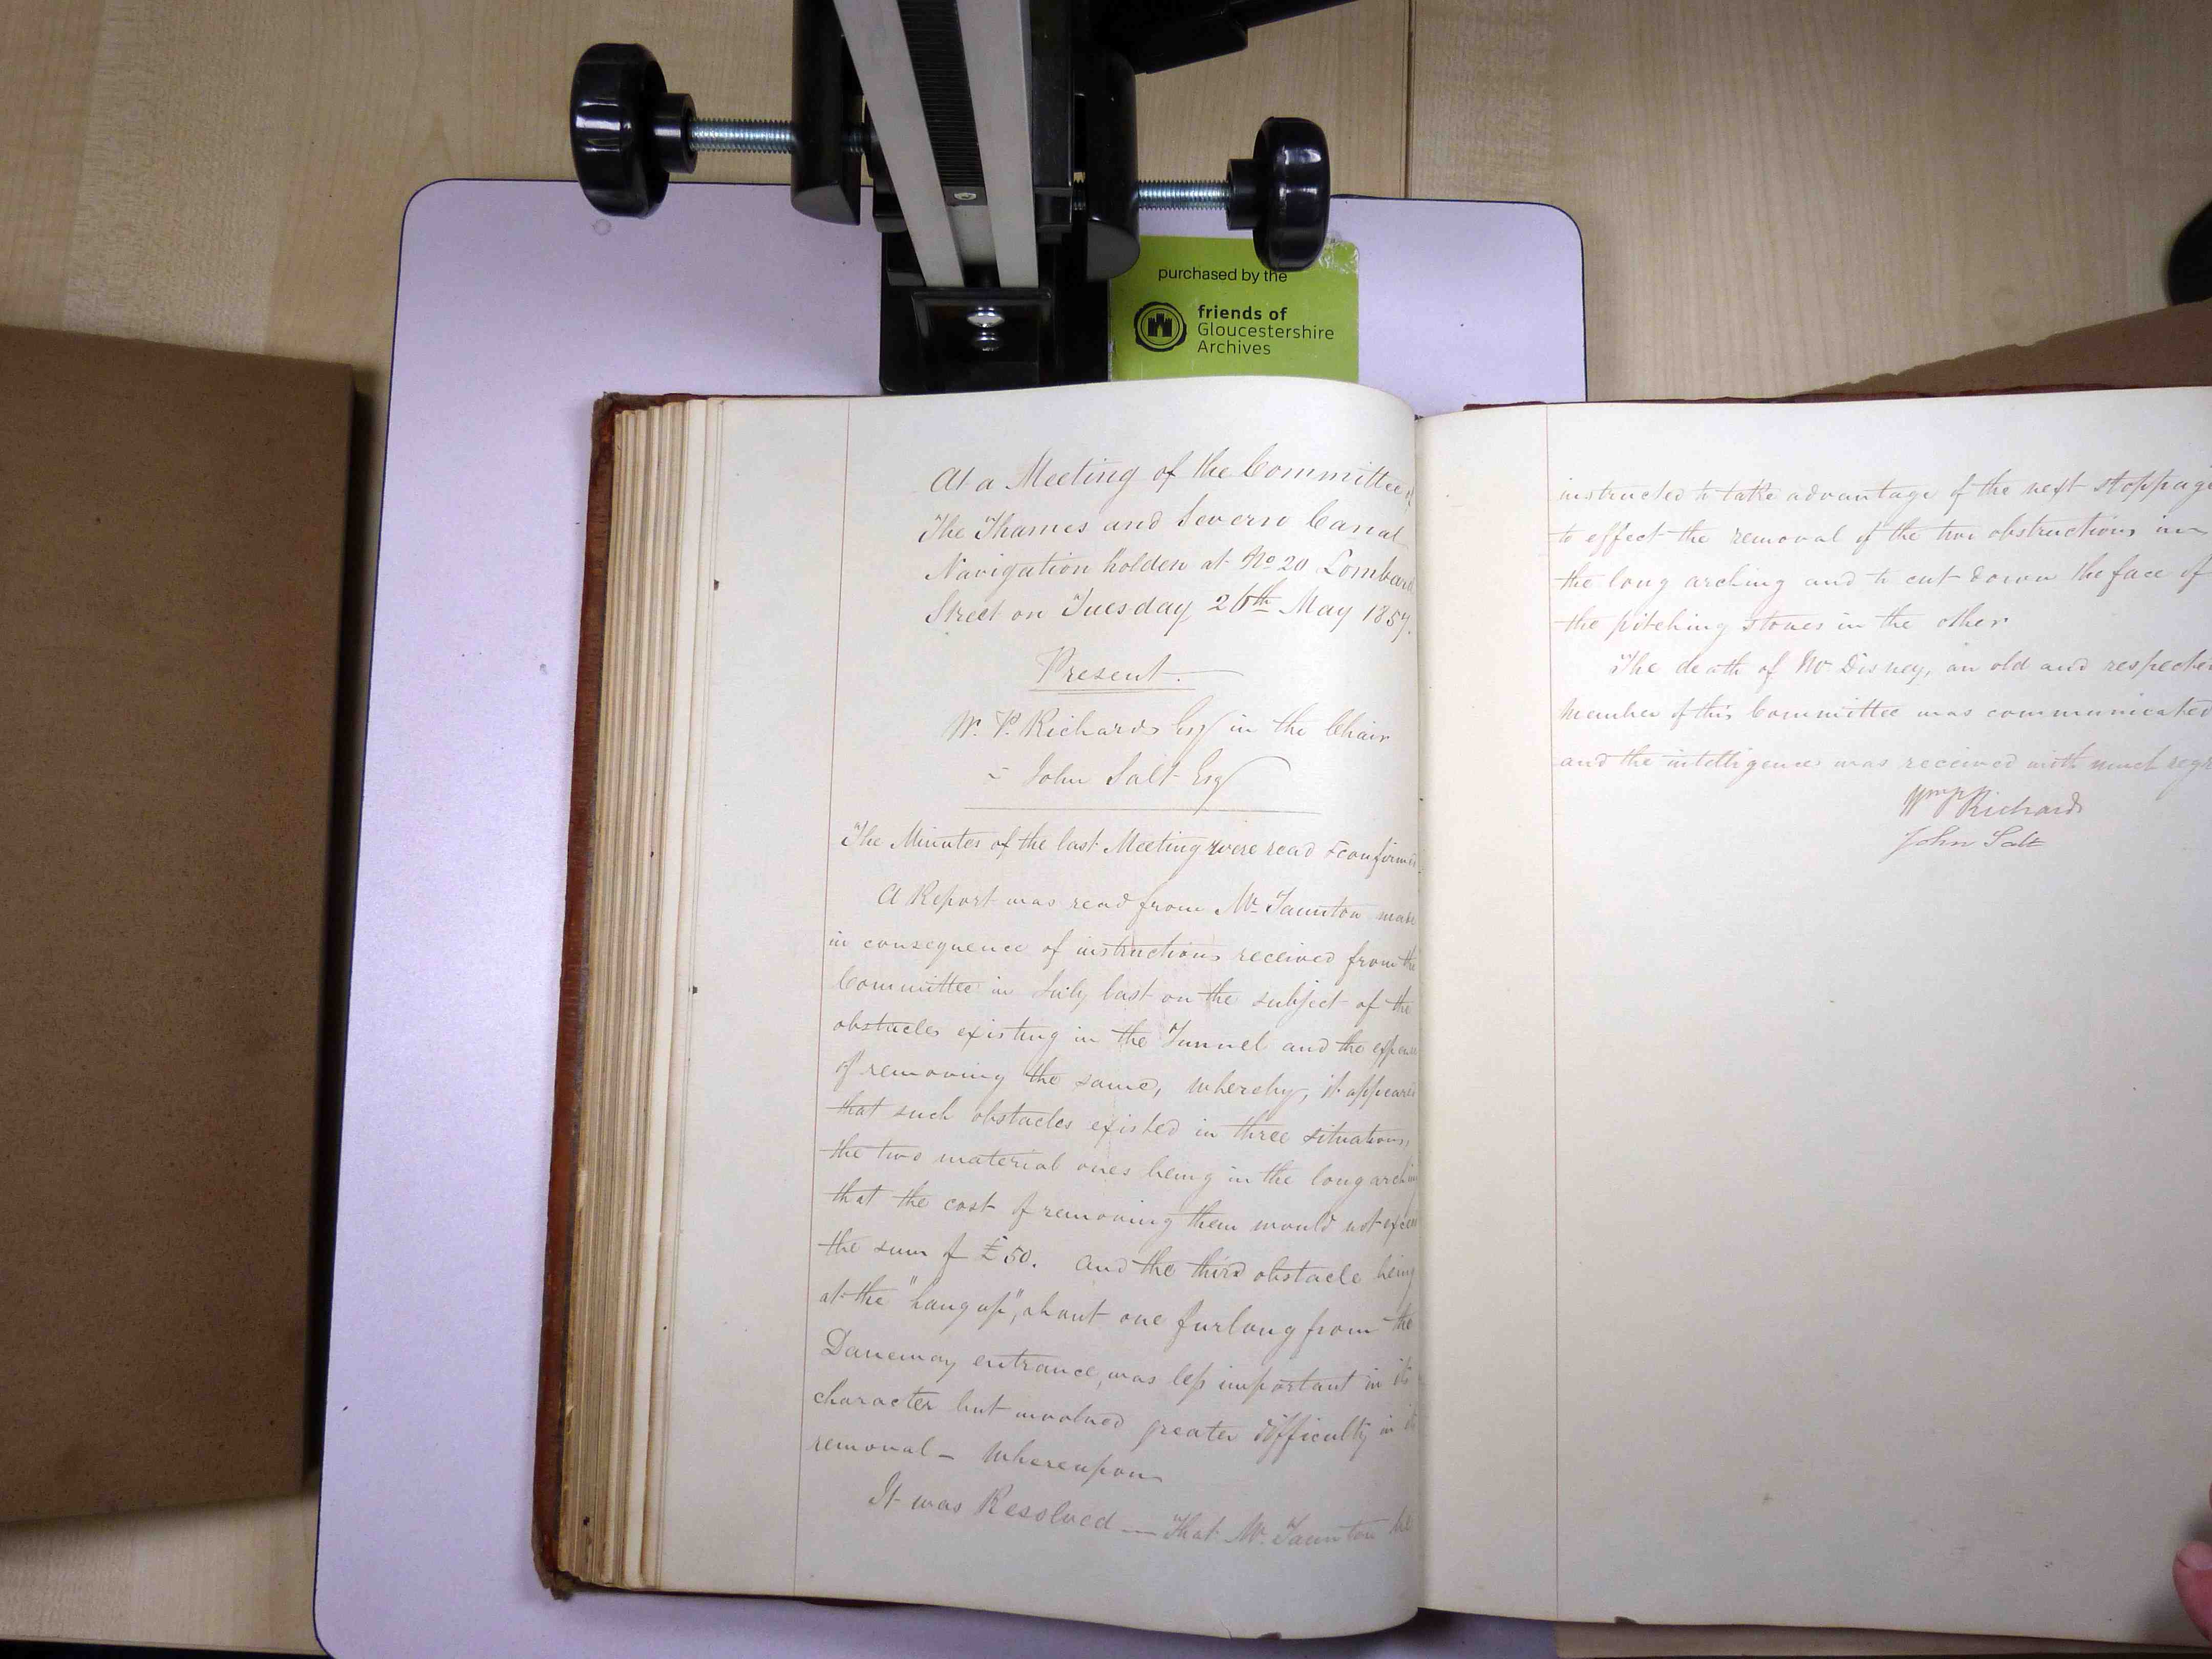 purchased by the
friends of
Gloucestershire
Archives
At a Meeting of the Committee of
The Thames and Severn Canal
Navigation holden at No 20 Lombard
Street on Tuesday 26th May 1857.
Present.
W. P. Richards Esq in the Chair
" John Salt Esq
The Minutes of the last Meeting were read & confirmed
A Report was read from Mr Taunton made
in consequence of instructions received from the
Committee in July last on the subject of the
obstacles existing in the Tunnel and the expense
of removing the same, whereby, it appeared
that such obstacles existed in three situations,
the two material ones being in the long arching
that the cost of removing them would not exceed
the sum of £50. and the third obstacle being
at the "hang up", about one furlong from the
Daneway entrance, was less important in its
character but involved greater difficulty in its
removal — Whereupon
It was Resolved — That Mr. Taunton be
instructed to take advantage of the next stoppage
to effect the removal of the two obstructions in
the long arching and to cut down the face of
the pitching stones in the other
The death of Mr Disney, an old and respected
Member of this Committee was communicated
and the intelligence was received with much regr
Wm P Richards
John Salt